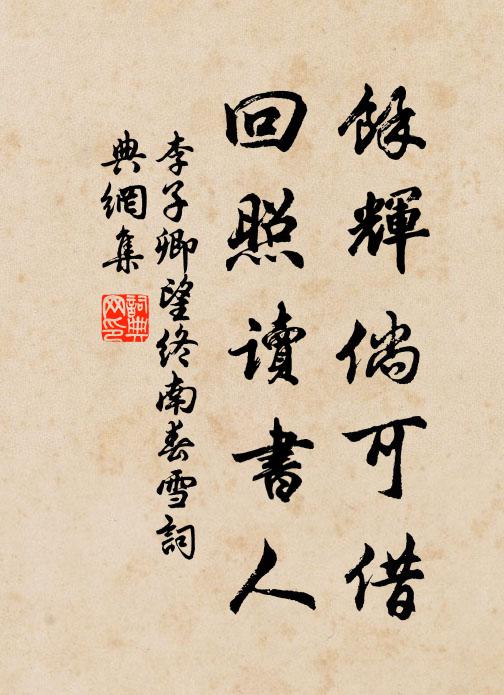 餘輝倘可借
回照讀書人
李子卿望終南春雪詞
典網集
詞典
网印